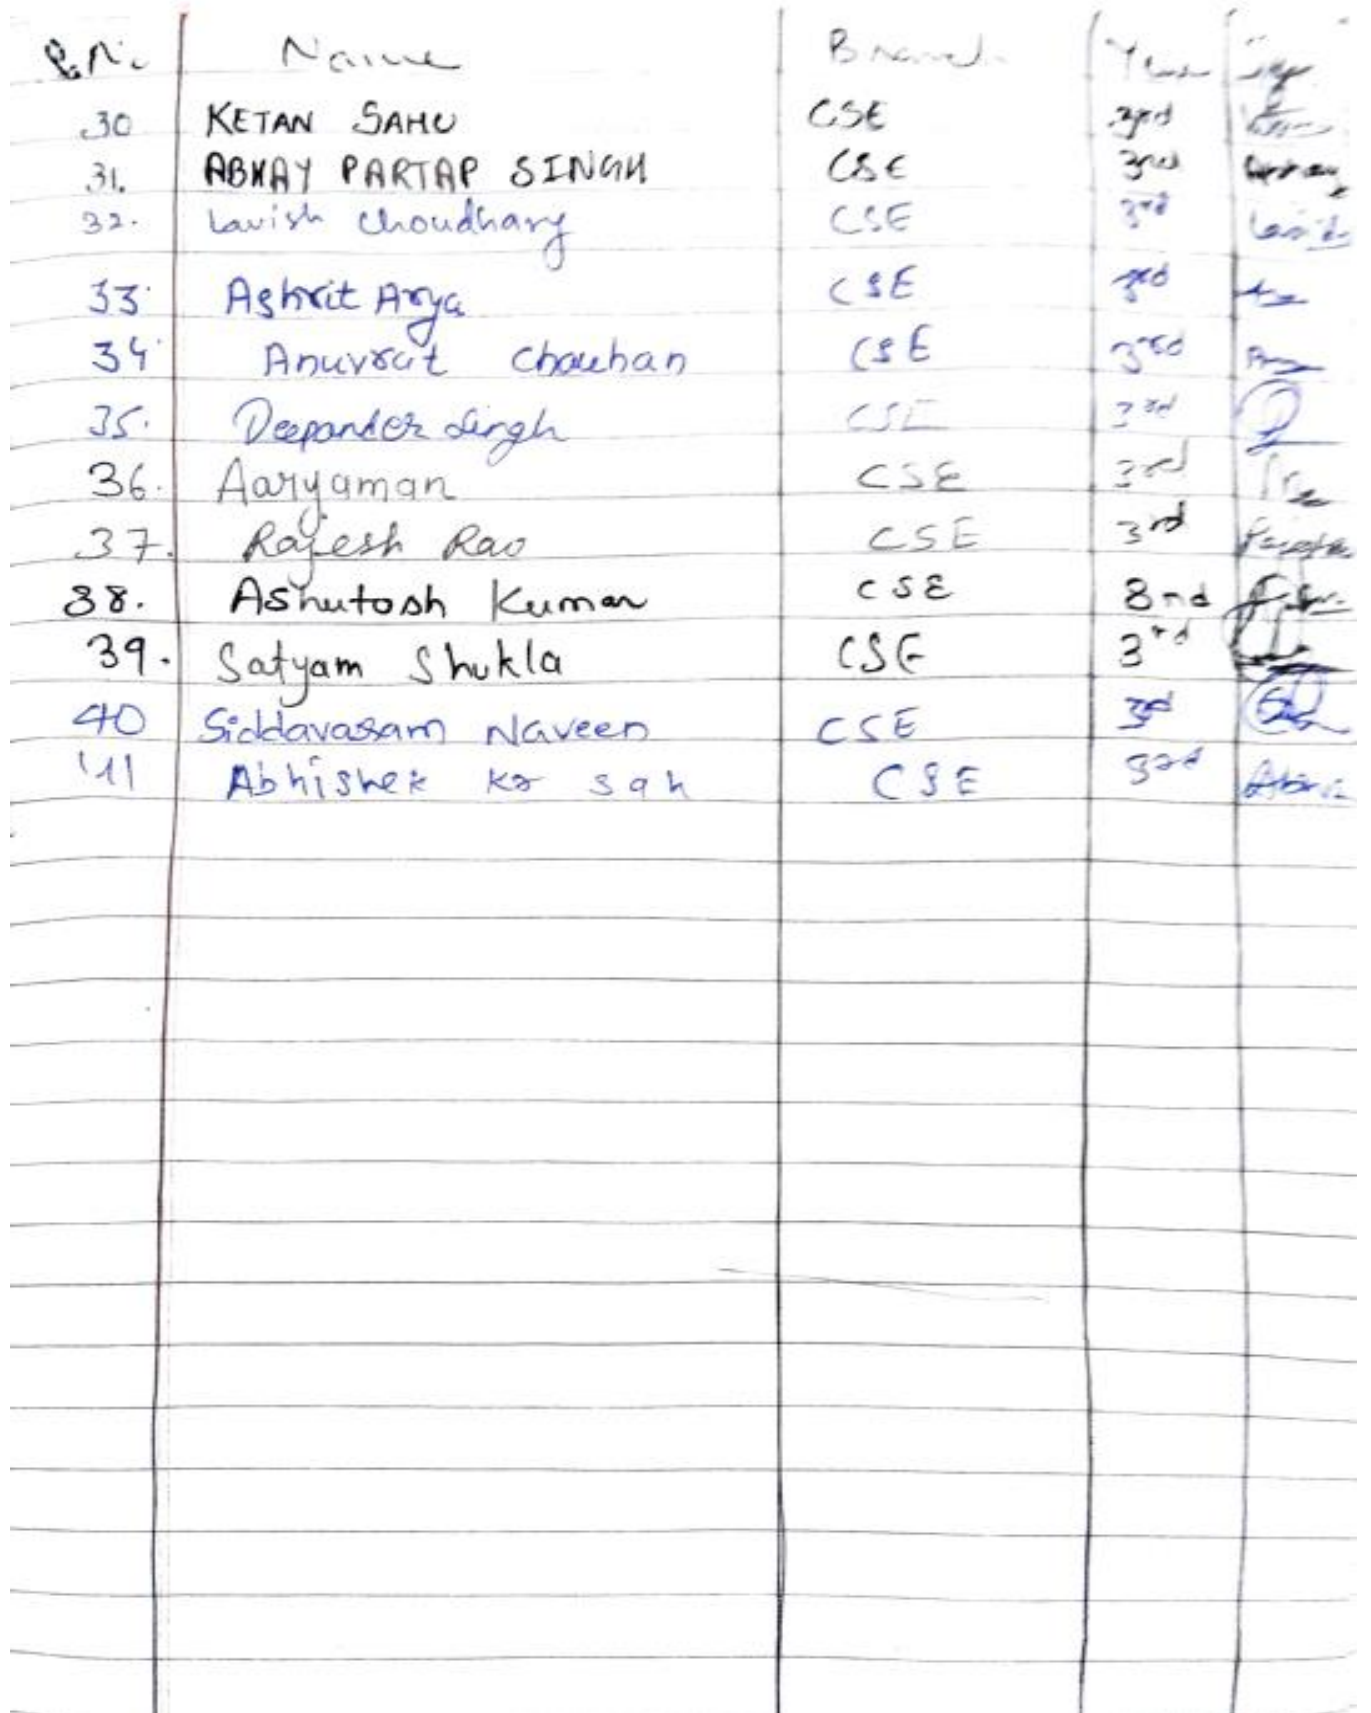 S.No Name Branch Year Sign
30 KETAN SAHU CSE 3rd
31. ABHAY PARTAP SINGH CSE 3rd
32. Lavish Choudhary CSE 3rd Lavish
33. Ashrit Arya CSE 3rd
34. Anuvrat Chauhan CSE 3rd
35. Deepander Singh CSE 3rd
36. Aaryaman CSE 3rd
37. Rajesh Rao CSE 3rd
38. Ashutosh Kumar CSE 3nd
39. Satyam Shukla CSE 3rd
40 Siddavasam Naveen CSE 3rd
41 Abhishek Kr Sah CSE 3rd